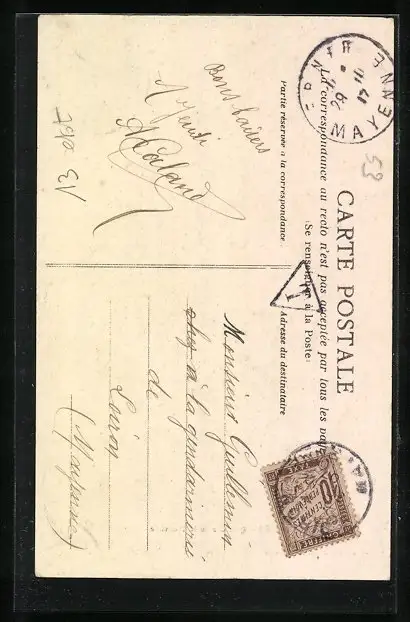 CARTE POSTALE
La correspondance au recto n'est pas acceptée par tous les pays
(Se renseigner à la Poste)
Partie réservée à la correspondance
Adresse du destinataire
MAYENNE
Bons baisers
T
Monsieur Guillemin
à la gendarmerie
de
Loiron
(Mayenne)
10
CENTIMES
À PERCEVOIR
53